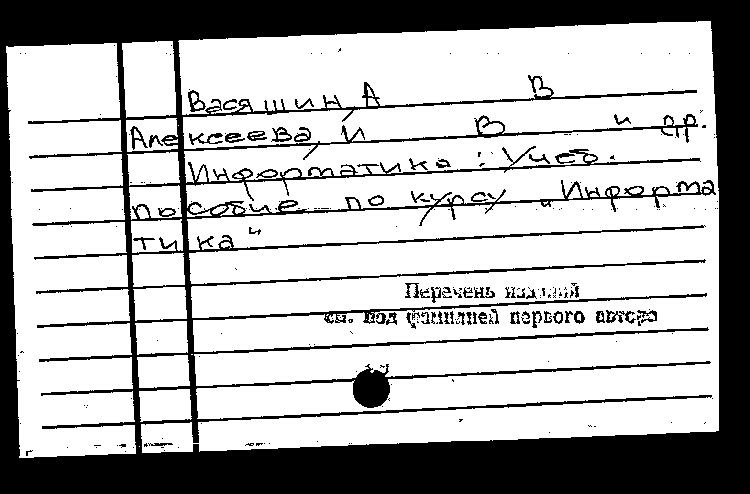 Васяшин, А В
Алексеева, И В и др.
Информатика : Учеб.
пособие по курсу „Информа
тика"
Перечень изданий
см. под фамилией первого автора